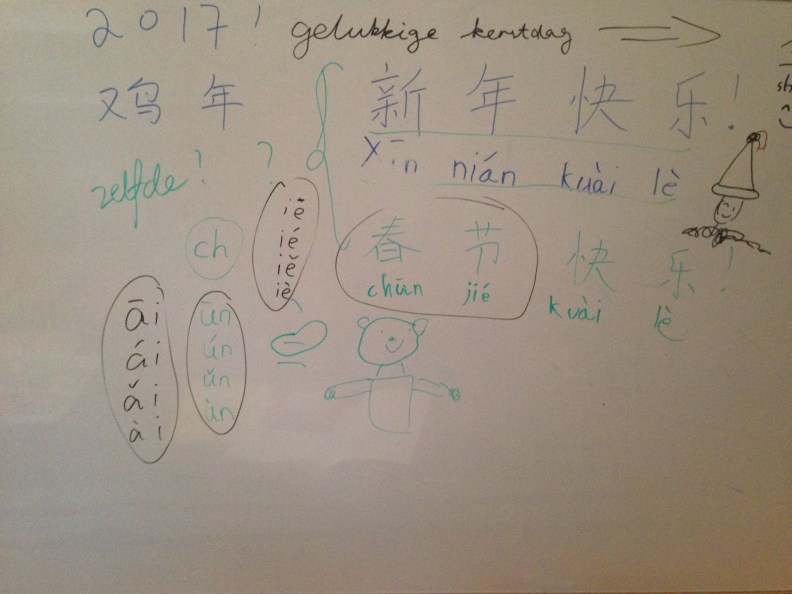 2017!
gelukkige kerstdag
鸡 年
新 年 快 乐!
xīn nián kuài lè
zelfde! ?
春 节 快 乐!
chūn jié kuài lè
ch
iē
ié
iě
iè
āi
ái
ǎi
ài
ūn
ún
ǔn
ùn